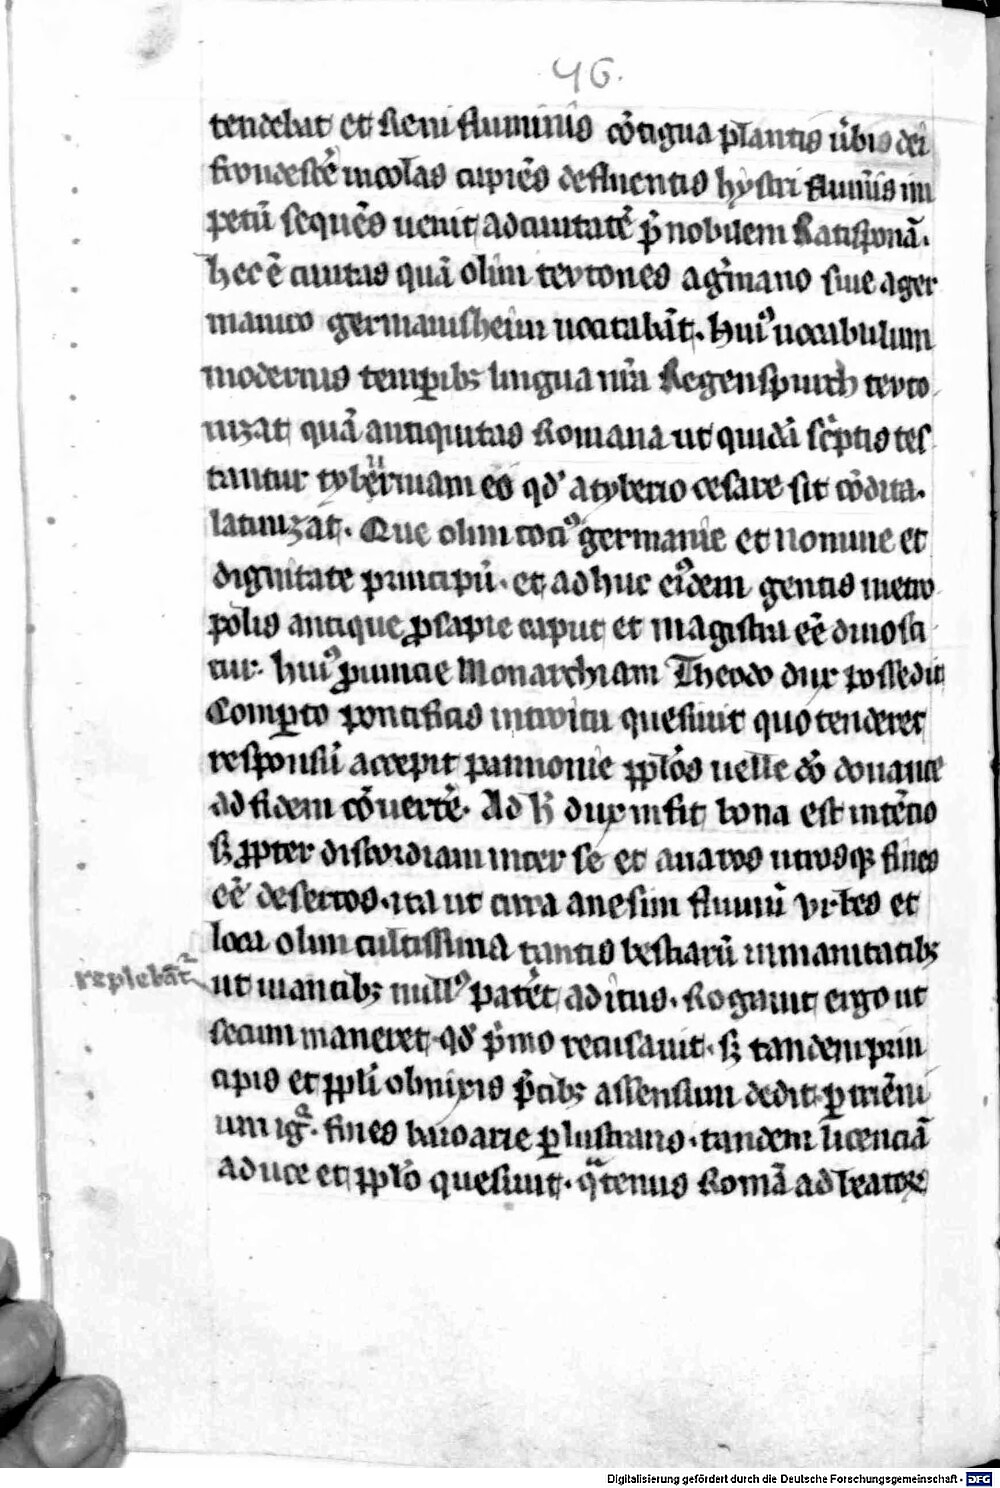 46.
tendebat et Reni fluminis cōtigua plantis v̄bis dei
frondescē incolas cupiēs defluentis hystri flumīs im
petū sequēs uenit ad ciuitatē p̄nobilem Ratisponā.
hec ē ciuitas quā olim teutones agermano siue a ger
manico germanisheim uocitabāt. hui9 uocabulum
modernis temporib3 lingua nr̄a Regenspurch teuto
nizat quā antiquitas Romana ut quidā sc̄ptis tes
tantur tyberniam eo qd' a tyberio cesare sit cōdita.
latinizāt. Que olim toci9 germanie et nomine et
dignitate principū. et adhuc ei9dem gentis metro
polis antique ꝓsapie caput et magistra eē dinosci
tur. hui9 ꝓuincie Monarchiam Theodo dux possedit
Comꝑto pontificis introitu quesiuit quo tenderet
responsū accepit pannonie ppl'os uelle dō donante
ad fidem cōuertē. Ad h̄ dux infit bona est intēcio
s3 ꝓpter discordiam inter se et auaros utrosq3 fines
eē desertos. ita ut circa anesim fluuiū vrbes et
loca olim cultissima tantis bestiarū inmanitatib3
replebāt᷑
ut uiantib3 null9 patēt aditus. Rogauit ergo ut
secum maneret. qd' p̄mo recusauit. s3 tandem prin
cipis et ppl'i obnixis p̄cib3 assensum dedit. ꝑ trienī
um igr. fines baioarie ꝑlustrans. tandem licenciā
a duce et ppl'o quesiuit. qtenus Romā ad beatorꝝ
Digitalisierung gefördert durch die Deutsche Forschungsgemeinschaft - DFG